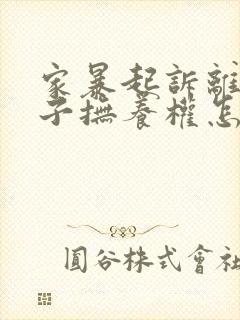 家暴起訴離
子撫養權怎
圓谷株式會社